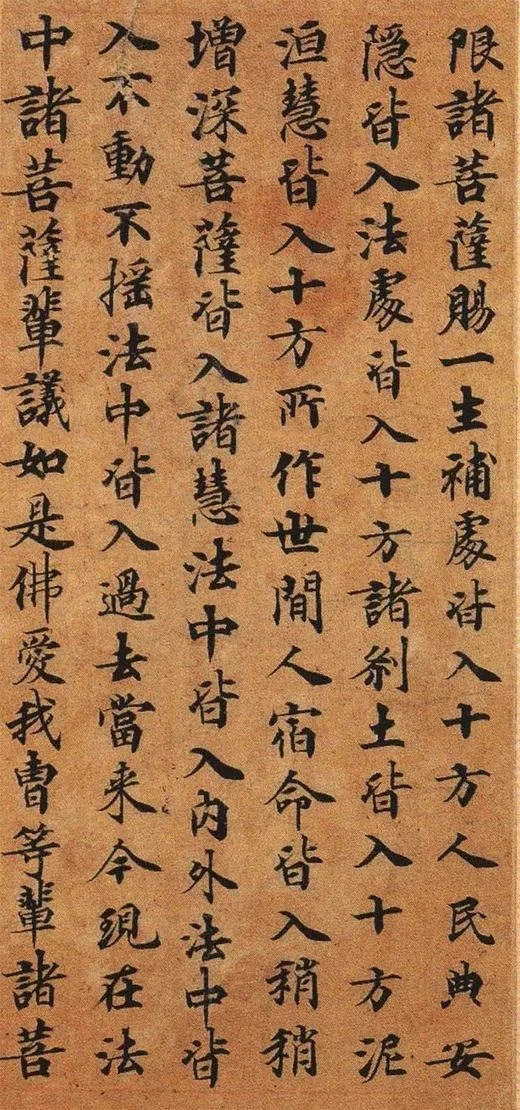 限諸菩薩賜一生補處皆入十方人民典安
隱皆入法處皆入十方諸刹土皆入十方泥
洹慧皆入十方所作世間人宿命皆入稍稍
增深菩薩皆入諸慧法中皆入内外法中皆
入不動不摇法中皆入過去當来今現在法
中諸菩薩輩議如是佛愛我曹等輩諸菩